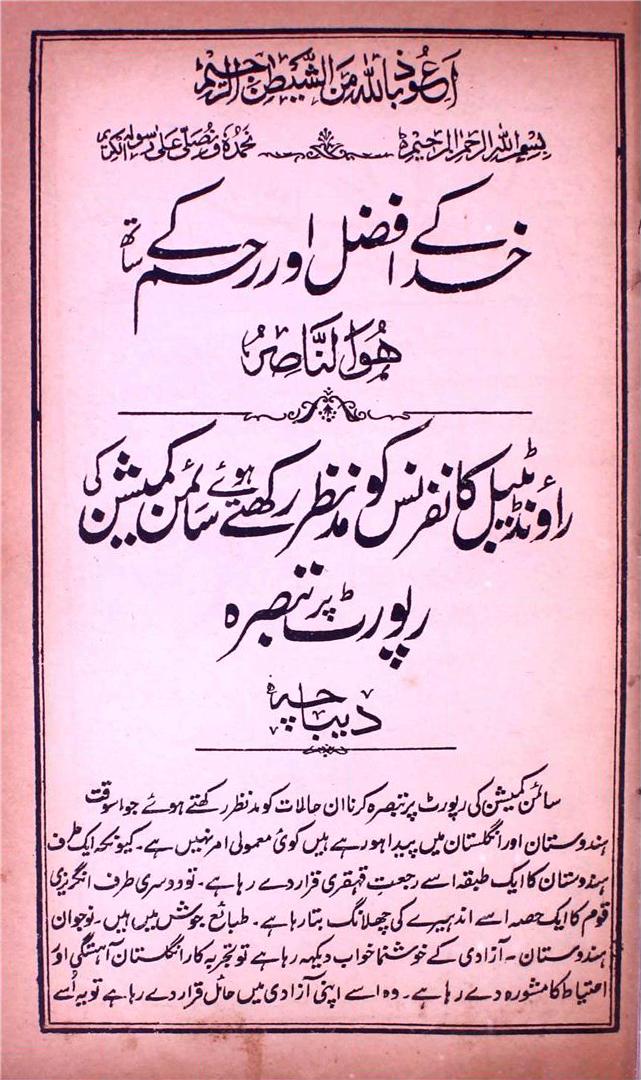 اَعُوذُ بِاللّٰهِ مِنَ الشَّيْطٰنِ الرَّجِيْمِ
بِسْمِ اللّٰهِ الرَّحْمٰنِ الرَّحِيْمِ نَحْمَدُهٗ وَنُصَلِّيْ عَلٰى رَسُوْلِهِ الْكَرِيْمِ
خدا کے فضل اور رحم کے ساتھ
هُوَ النَّاصِرُ
راؤنڈ ٹیبل کانفرنس کو مدنظر رکھتے ہوئے سائمن کمیشن کی
رپورٹ پر تبصرہ
دیباچہ
سائمن کمیشن کی رپورٹ پر تبصرہ کرنا ان حالات کو مدنظر رکھتے ہوئے جو اسوقت
ہندوستان اور انگلستان میں پیدا ہو رہے ہیں کوئی معمولی امر نہیں ہے۔ کیونکہ ایک طرف
ہندوستان کا ایک طبقہ اسے رجعت قہقری قرار دے رہا ہے۔ تو دوسری طرف انگریزی
قوم کا ایک حصہ اسے اندہیرے کی چھلانگ بتا رہا ہے۔ طبائع جوش میں ہیں۔ نوجوان
ہندوستان۔ آزادی کے خوشنما خواب دیکہہ رہا ہے تو تجربہ کار انگلستان آہستگی اور
احتیاط کا مشورہ دے رہا ہے۔ وہ اسے اپنی آزادی میں حائل قرار دے رہا ہے تو یہ اُسے